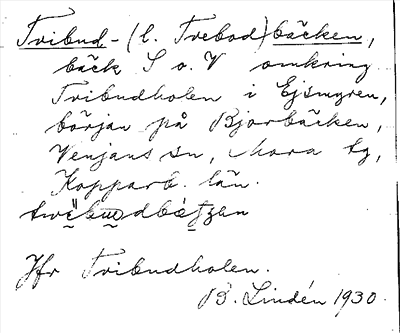 Tvibud-(l. Trebod)bäcken,
bäck S o. V omkring
Tvibudholen i Ejsmyren,
början på Bjorbäcken,
Venjans sn, Mora tg,
Kopparb. län.
Jfr Tvibudholen.
B. Lindén 1930.